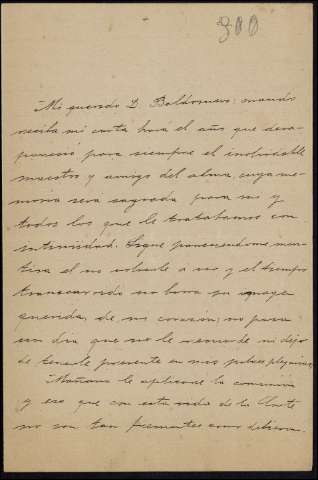 300
Mi querido D. Baldomero: cuando
reciba mi carta hará el año que desa-
pareció para siempre el inolvidable
maestro y amigo del alma, cuya me-
moria sera sagrada para mi y
todos los que le tratabamos con
intimidad. Sigue pareciendome men-
tira el no volverle a ver y el tiempo
transcurrido no borra su imagen
querida, de mi corazón; no pasa
un dia que no le recuerde ni deje
de tenerle presente en mis pobres plegarias.
Mañana le aplicaré la comunión
y eso que con esta vida de la Corte
no son tan frecuentes como debieran.